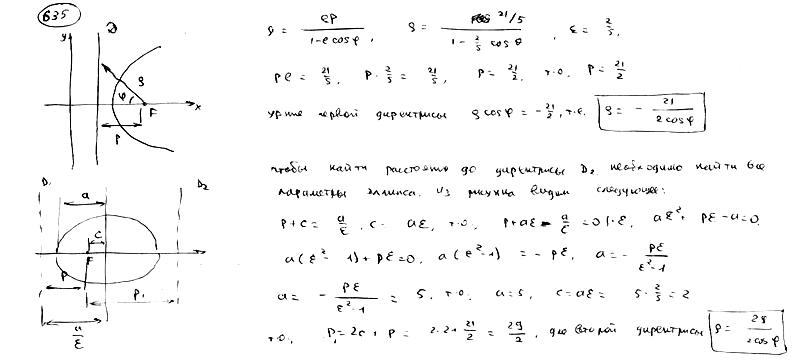 635
ρ = eP / (1 - e cos φ), ρ = 21/5 / (1 - 2/5 cos θ), ε = 2/5,
Pe = 21/5, P · 2/5 = 21/5, P = 21/2, т.о. P = 21/2
ур-ие первой директрисы ρ cos φ = -21/2, т.е. ρ = - 21 / 2cos φ
чтобы найти расстояние до директрисы D₂ необходимо найти все
параметры эллипса. Из рисунка видим следующее:
P + c = a/ε, c = aε, т.о. P + aε - a/ε = 0 | · ε, aε² + Pε - a = 0
a(ε² - 1) + Pε = 0, a(ε² - 1) = - Pε, a = - Pε / (ε² - 1)
a = - Pε / (ε² - 1) = 5, т.о. a = 5, c = aε = 5 · 2/5 = 2
т.о. P₁ = 2c + P = 2·2 + 21/2 = 29/2, для второй директрисы ρ = 29 / 2cos φ
y
D
ρ
φ
F
x
P
D₁
D₂
a
c
F
P
P₁
a/ε